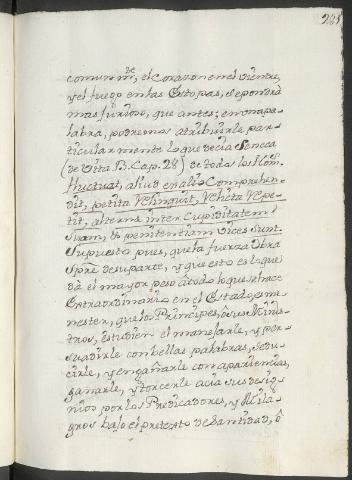 285
comunm.te, el Corazon en el Vientre,
y el fuego en las Estopas, Responda
mas furioso, que antes; en una pa-
labra, podremos atribuirle par-
ticularmente lo que decia Seneca
(de Vita B. Cap. 28) de todos los Hom.s
fluctuat, aliud ex alio Comprehen-
dit, petita Relinquit, Relicta Repe-
tit, alterna inter Cupiditatem
Suam, & penitentiam vices sunt.
Supuesto pues, que la fuerza obra
Spre de suparte, y que esto es lo que
dà el mayor peso à todo lo que se hace
Extraordinario en el Estado, es me-
nester, que los Principes, ò sus Minis-
tros, estudien el manejarle, y per-
suadirle con bellas palabras, sedu-
cirle, y engañarle con apariencias,
ganarle, y torcerle acia sus desig-
nios por los Predicadores, y Mila-
gros bajo el pretexto de Santidad, ò